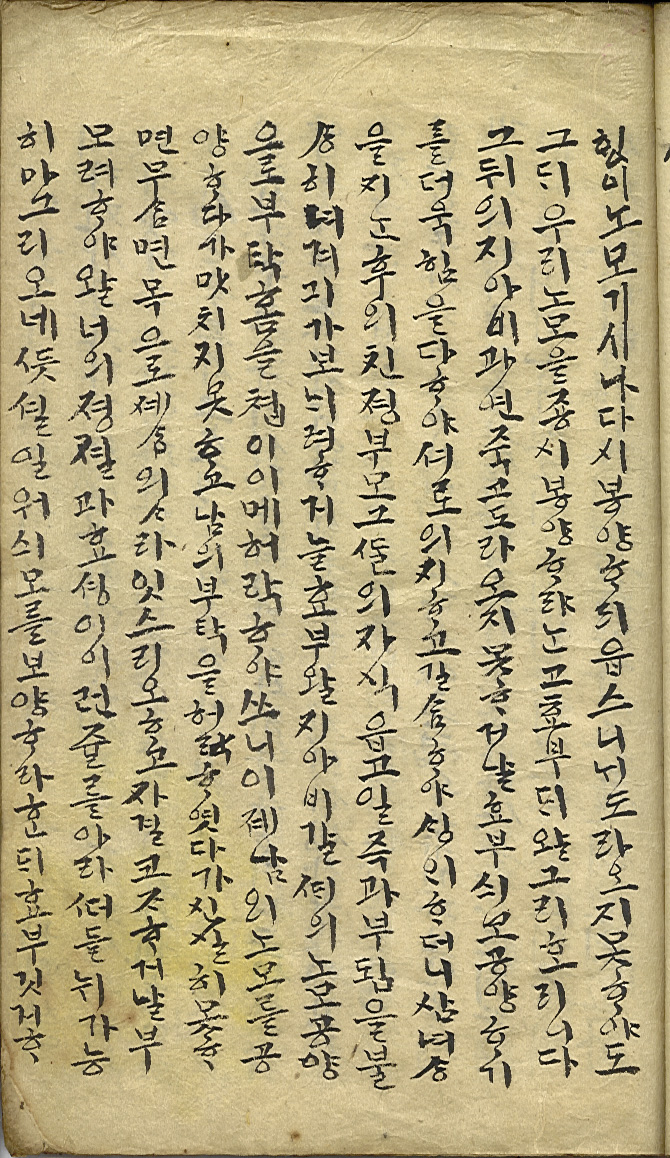 힝이 노모기시나 다시 봉양ᄒᆞ리 읍스니 ᄂᆡ 도라오지 못ᄒᆞ야도
그ᄃᆡ 우리 노모을 죵시 봉양ᄒᆞ랴는고 효부 ᄃᆡ왈 그리ᄒᆞ리이다
그 뒤의 지아비 과연 죽고 도라오지 못ᄒᆞ거날 효부 싀모 공양ᄒᆞ기
를 더욱 힘을 다ᄒᆞ야 셔로 의지ᄒᆞ고 ᄒᆞ야 ᄒᆞ더니 삼년승
을 지ᄂᆞᆫ 후의 친졍부모 그 ᄯᆞᆯ의 자식 읍고 일즉 과부 됨을 불
승히 녀겨 ᄀᆡ가 보ᄂᆡ려 ᄒᆞ거늘 효부 왈 지아비 갈 ᄯᆡ의 노모 공양
으로 부탁홈을 쳡이 이메 허락ᄒᆞ야쓰니 이졔 남의 노모를 공
양ᄒᆞ다가 맛치지 못ᄒᆞ고 남의 부탁을 허락ᄒᆞ엿다가 신실히 못ᄒᆞ
면 무슴 면목으로 셰승의 ᄉᆞ라잇스리오 ᄒᆞ고 자결코ᄌᆞ ᄒᆞ거날 부
모 려ᄒᆞ야 왈 너의 졍졀과 효셩이 이런 쥴를 아라ᄯᅥ들 뉘가 능
히 마그리오 네 ᄯᅳᆺᄃᆡ일 워 싀모를 보양ᄒᆞ라 ᄒᆞᆫᄃᆡ 효부 깃거ᄒᆞ